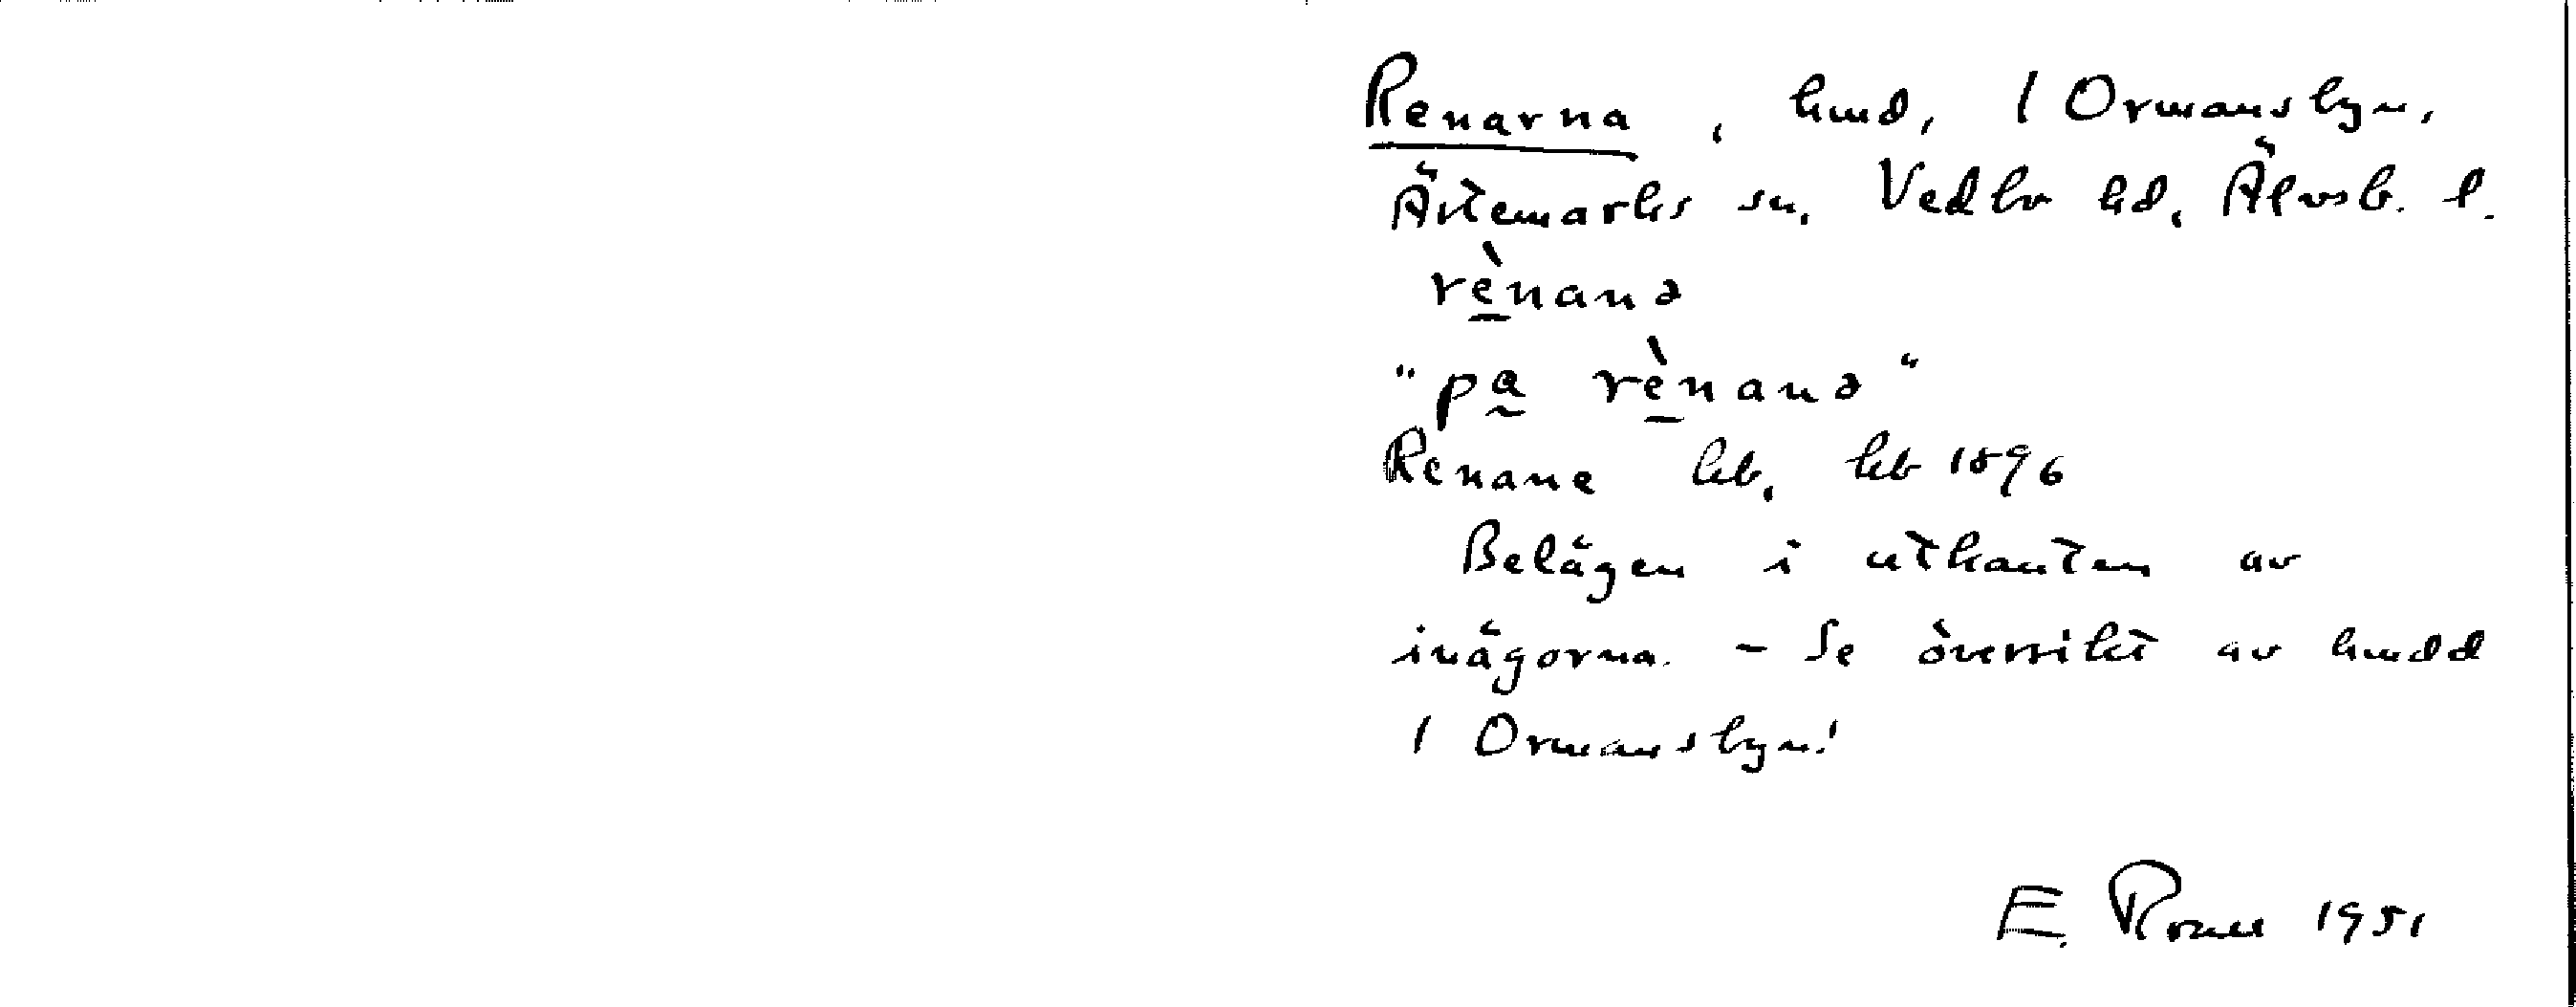 Renarna, hmd, 1 Ormansbyn,
Ärtemarks sn, Vedbo hd, Älvsb. l.
rènanə
"pa rènanə"
Renane hb, kb 1896
Belägen i utkanten av
inägorna. - Se översikt av hmdd
1 Ormansbyn!
E. 1951